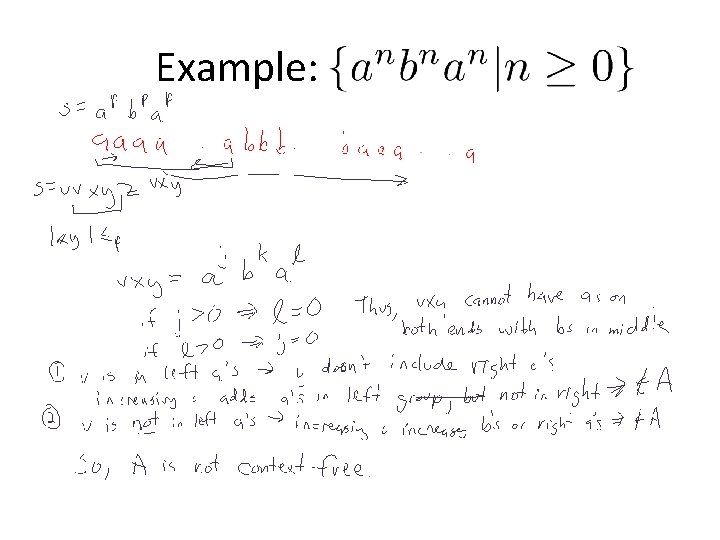 Example: {aⁿbⁿaⁿ|n ≥ 0}
s = aᵖ bᵖ aᵖ
aaaa . abbb. . baaa . . a
s=uvxyz vxy
|xy| ≤ p
vxy = aʲ bᵏ aˡ
if j>0 ⇒ l=0
if l>0 ⇒ j=0
Thus, vxy cannot have as on
both ends with bs in middle
① v is in left a's → v doesn't include right a's
increasing i adds a's in left group, but not in right ⇒ ∉ A
② v is not in left a's → increasing i increases b's or right a's ⇒ ∉ A
So, A is not context-free.